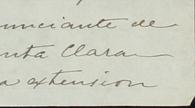 unciante de
nta Clara
a extension